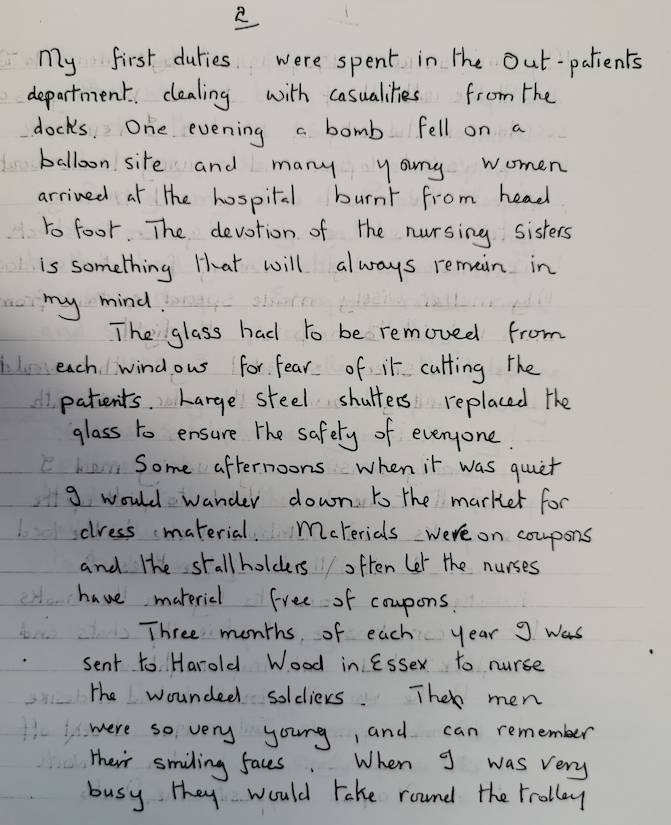 2
My first duties were spent in the Out-patients
department. dealing with casualities from the
docks. One evening a bomb fell on a
balloon site and many young women
arrived at the hospital burnt from head
to foot. The devotion of the nursing Sisters
is something that will always remain in
my mind.
The glass had to be removed from
each windows for fear of it cutting the
patients. Large steel shutters replaced the
glass to ensure the safety of everyone.
Some afternoons when it was quiet
I would wander down to the market for
dress material. Materials were on coupons
and the stallholders often let the nurses
have material free of coupons.
Three months of each year I was
sent to Harold Wood in Essex to nurse
the wounded soldiers. The men
were so very young, and can remember
their smiling faces. When I was very
busy they would take round the trolley